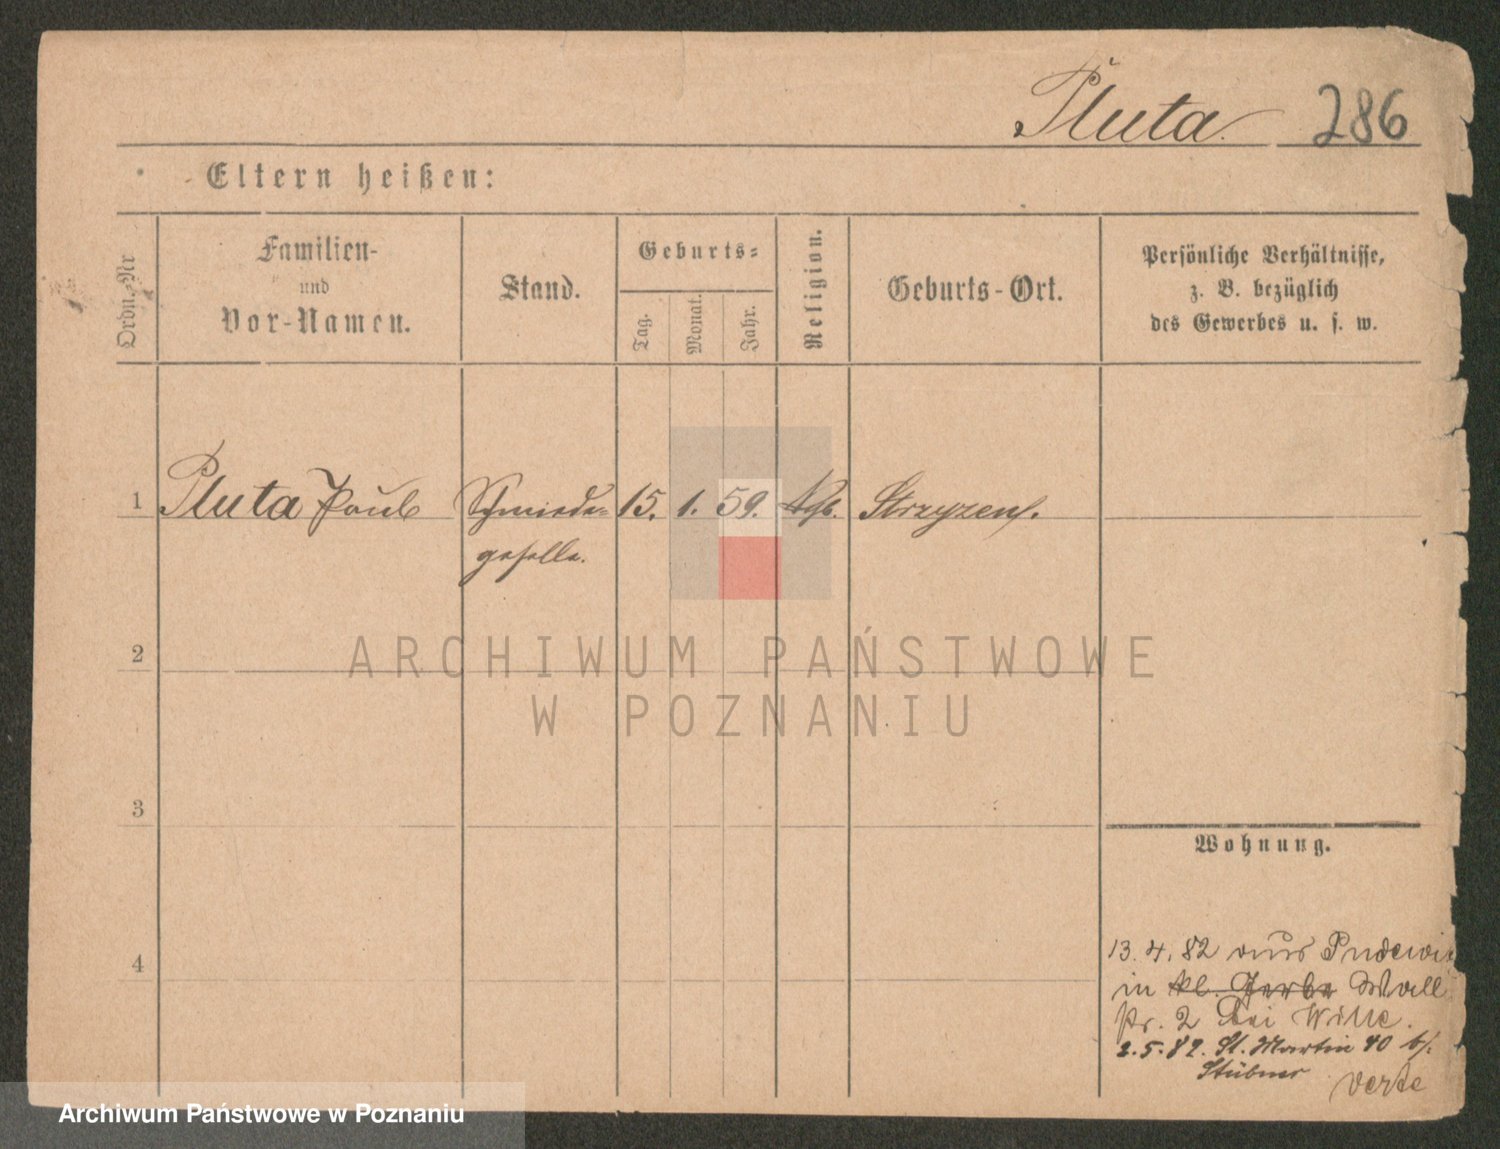 Pluta. 286
Eltern heißen:
Ordn.-Nr
Familien-
und
Vor-Namen.
Stand.
Geburts-
Tag.
Monat.
Jahr.
Religion.
Geburts-Ort.
Persönliche Verhältnisse,
z. B. bezüglich
des Gewerbes u. s. w.
1 Pluta Paul Schmiede- 15. 1. 59. Kth.
geselle.
2
ARCHIWUM PAŃSTWOWE
W POZNANIU
3
Wohnung.
4
13. 4. 82 aus Pudewitz
in kl. Gerbe Wall
str. 2 bei Wille.
2. 5. 82. St. Martin 40 b/.
Stübner
verte
Archiwum Państwowe w Poznaniu